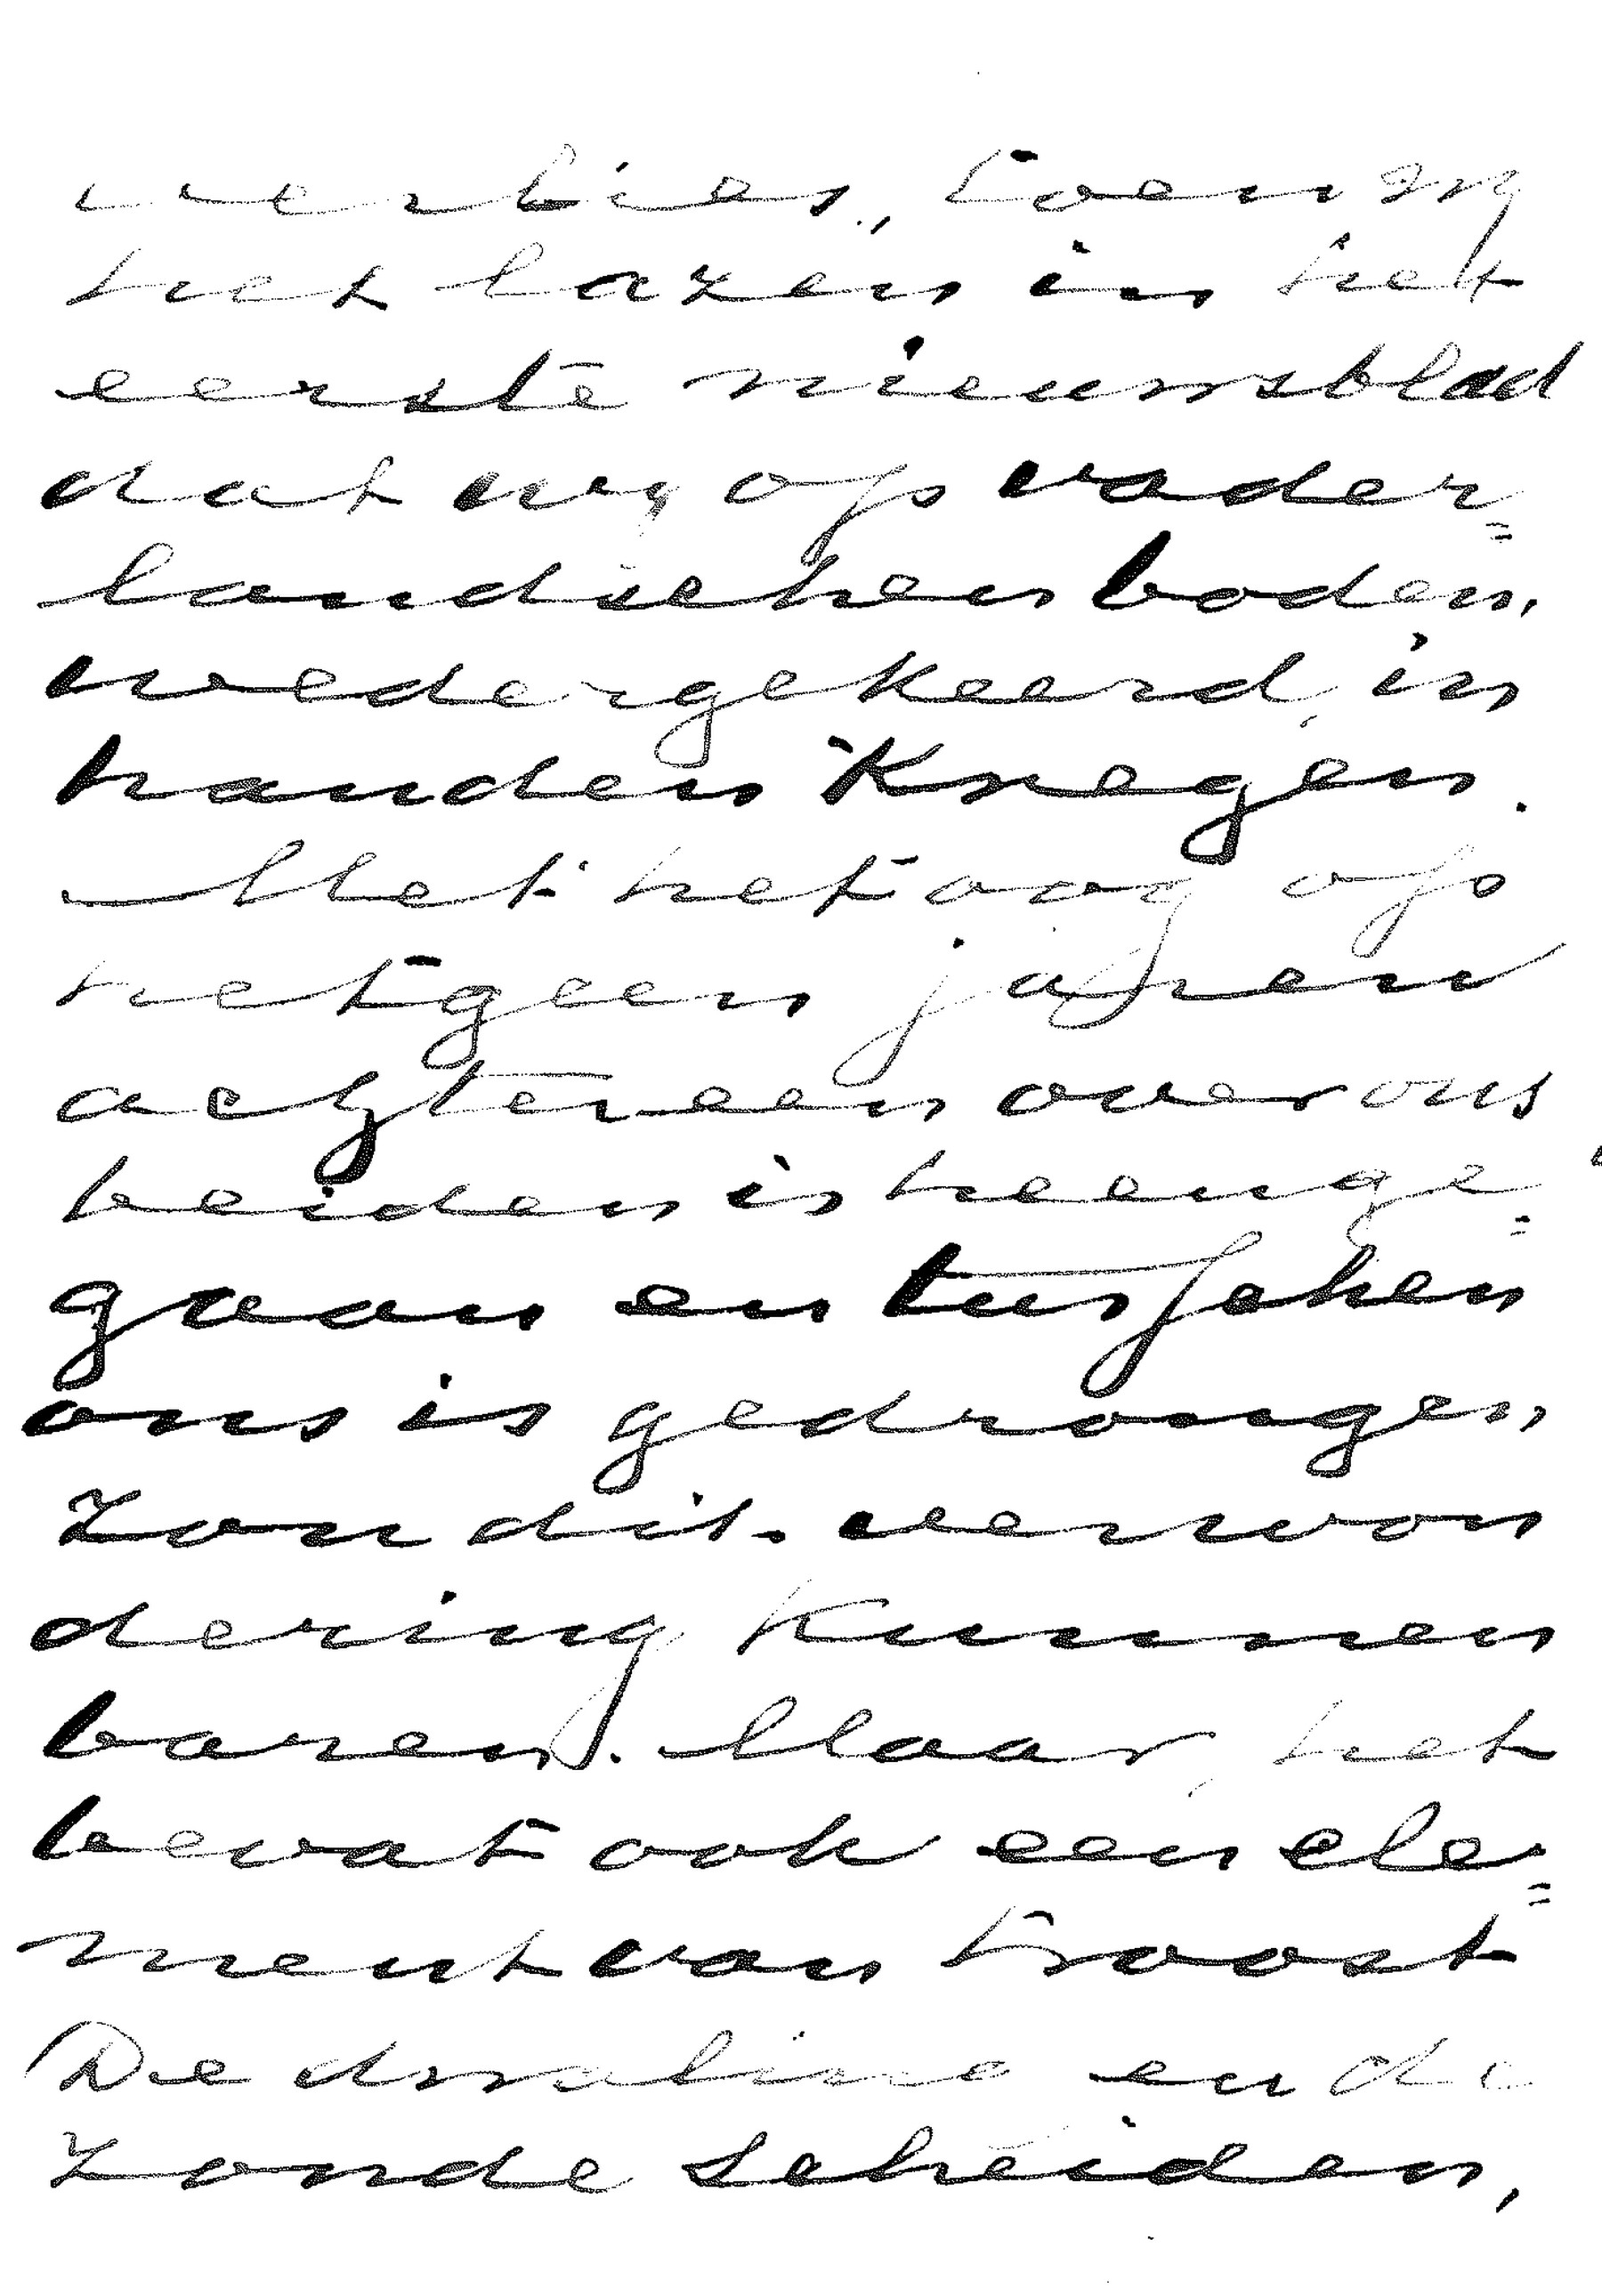 verlies, toen wy
het lazen in het
eerste nieuwsblad
dat wy op vader=
landschen bodem,
wedergekeerd, in
handen kregen.
Met het oog op
hetgeen jaren
achtereen over ons
beiden is heenge=
gaan en tusschen
ons is gedrongen,
zou dit verwon
dering kunnen
baren. Maar, het
bevat ook een ele=
ment van troost
De dwaling en de
zonde scheiden,